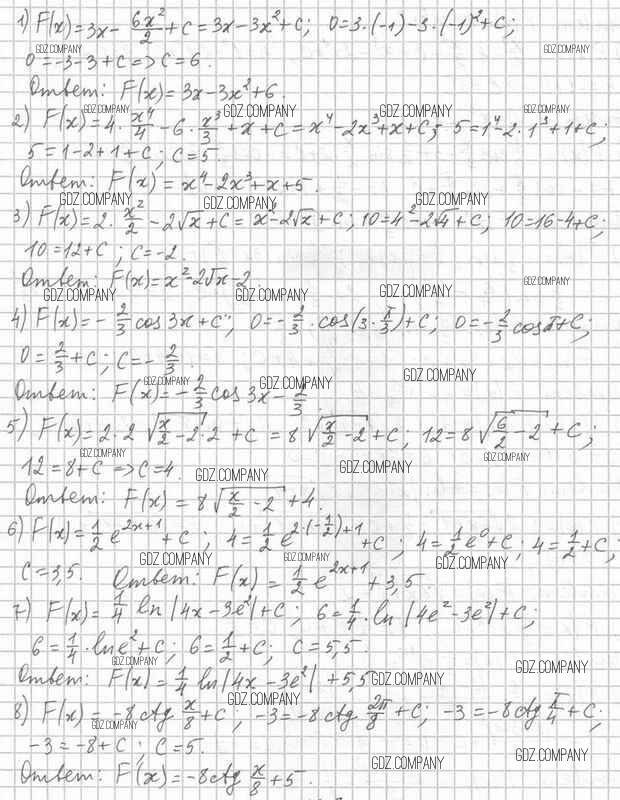 1) F(x)=3x- 6x²/2 +C=3x-3x²+C; 0=3·(-1)-3·(-1)²+C;
GDZ.COMPANY GDZ.COMPANY
0=-3-3+C=>C=6.
Ответ: F(x)=3x-3x²+6.
GDZ.COMPANY GDZ.COMPANY GDZ.COMPANY GDZ.COMPANY
2) F(x)=4· x⁴/4 -6· x³/3 +x+C=x⁴-2x³+x+C; 5=1⁴-2·1³+1+C;
5=1-2+1+C; C=5.
Ответ: F(x)=x⁴-2x³+x+5.
GDZ.COMPANY GDZ.COMPANY GDZ.COMPANY
3) F(x)=2· x²/2 -2√x+C=x²-2√x+C; 10=4²-2√4+C; 10=16-4+C;
10=12+C; C=-2.
Ответ: F(x)=x²-2√x-2
GDZ.COMPANY GDZ.COMPANY GDZ.COMPANY GDZ.COMPANY
4) F(x)=- 2/3 cos3x+C; 0=- 2/3 ·cos(3· π/3)+C; 0=- 2/3 cosπ+C;
0= 2/3 +C; C=- 2/3.
GDZ.COMPANY GDZ.COMPANY GDZ.COMPANY
Ответ: F(x)=- 2/3 cos3x- 2/3.
5) F(x)=2·2 √(x/2 -2)·2 +C =8√(x/2 -2)+C; 12=8√(6/2 -2)+C;
GDZ.COMPANY GDZ.COMPANY GDZ.COMPANY
12=8+C=>C=4.
GDZ.COMPANY
Ответ: F(x)=8√(x/2 -2)+4.
6) F(x)= 1/2 e^(2x+1)+C; 4= 1/2 e^(2·(-1/2)+1)+C; 4= 1/2 e⁰+C; 4= 1/2 +C;
GDZ.COMPANY GDZ.COMPANY GDZ.COMPANY
C=3,5. Ответ: F(x)= 1/2 e^(2x+1)+3,5.
7) F(x)= 1/4 ln|4x-3e²|+C; 6= 1/4 ·ln|4e²-3e²|+C;
6= 1/4 ·lne²+C; 6= 1/2 +C; C=5,5.
GDZ.COMPANY GDZ.COMPANY
Ответ: F(x)= 1/4 ln|4x-3e²|+5,5
GDZ.COMPANY GDZ.COMPANY
8) F(x)=-8ctg x/8 +C; -3=-8ctg 2π/8 +C; -3=-8ctg π/4 +C;
GDZ.COMPANY
-3=-8+C; C=5.
GDZ.COMPANY GDZ.COMPANY
Ответ: F(x)=-8ctg x/8 +5.